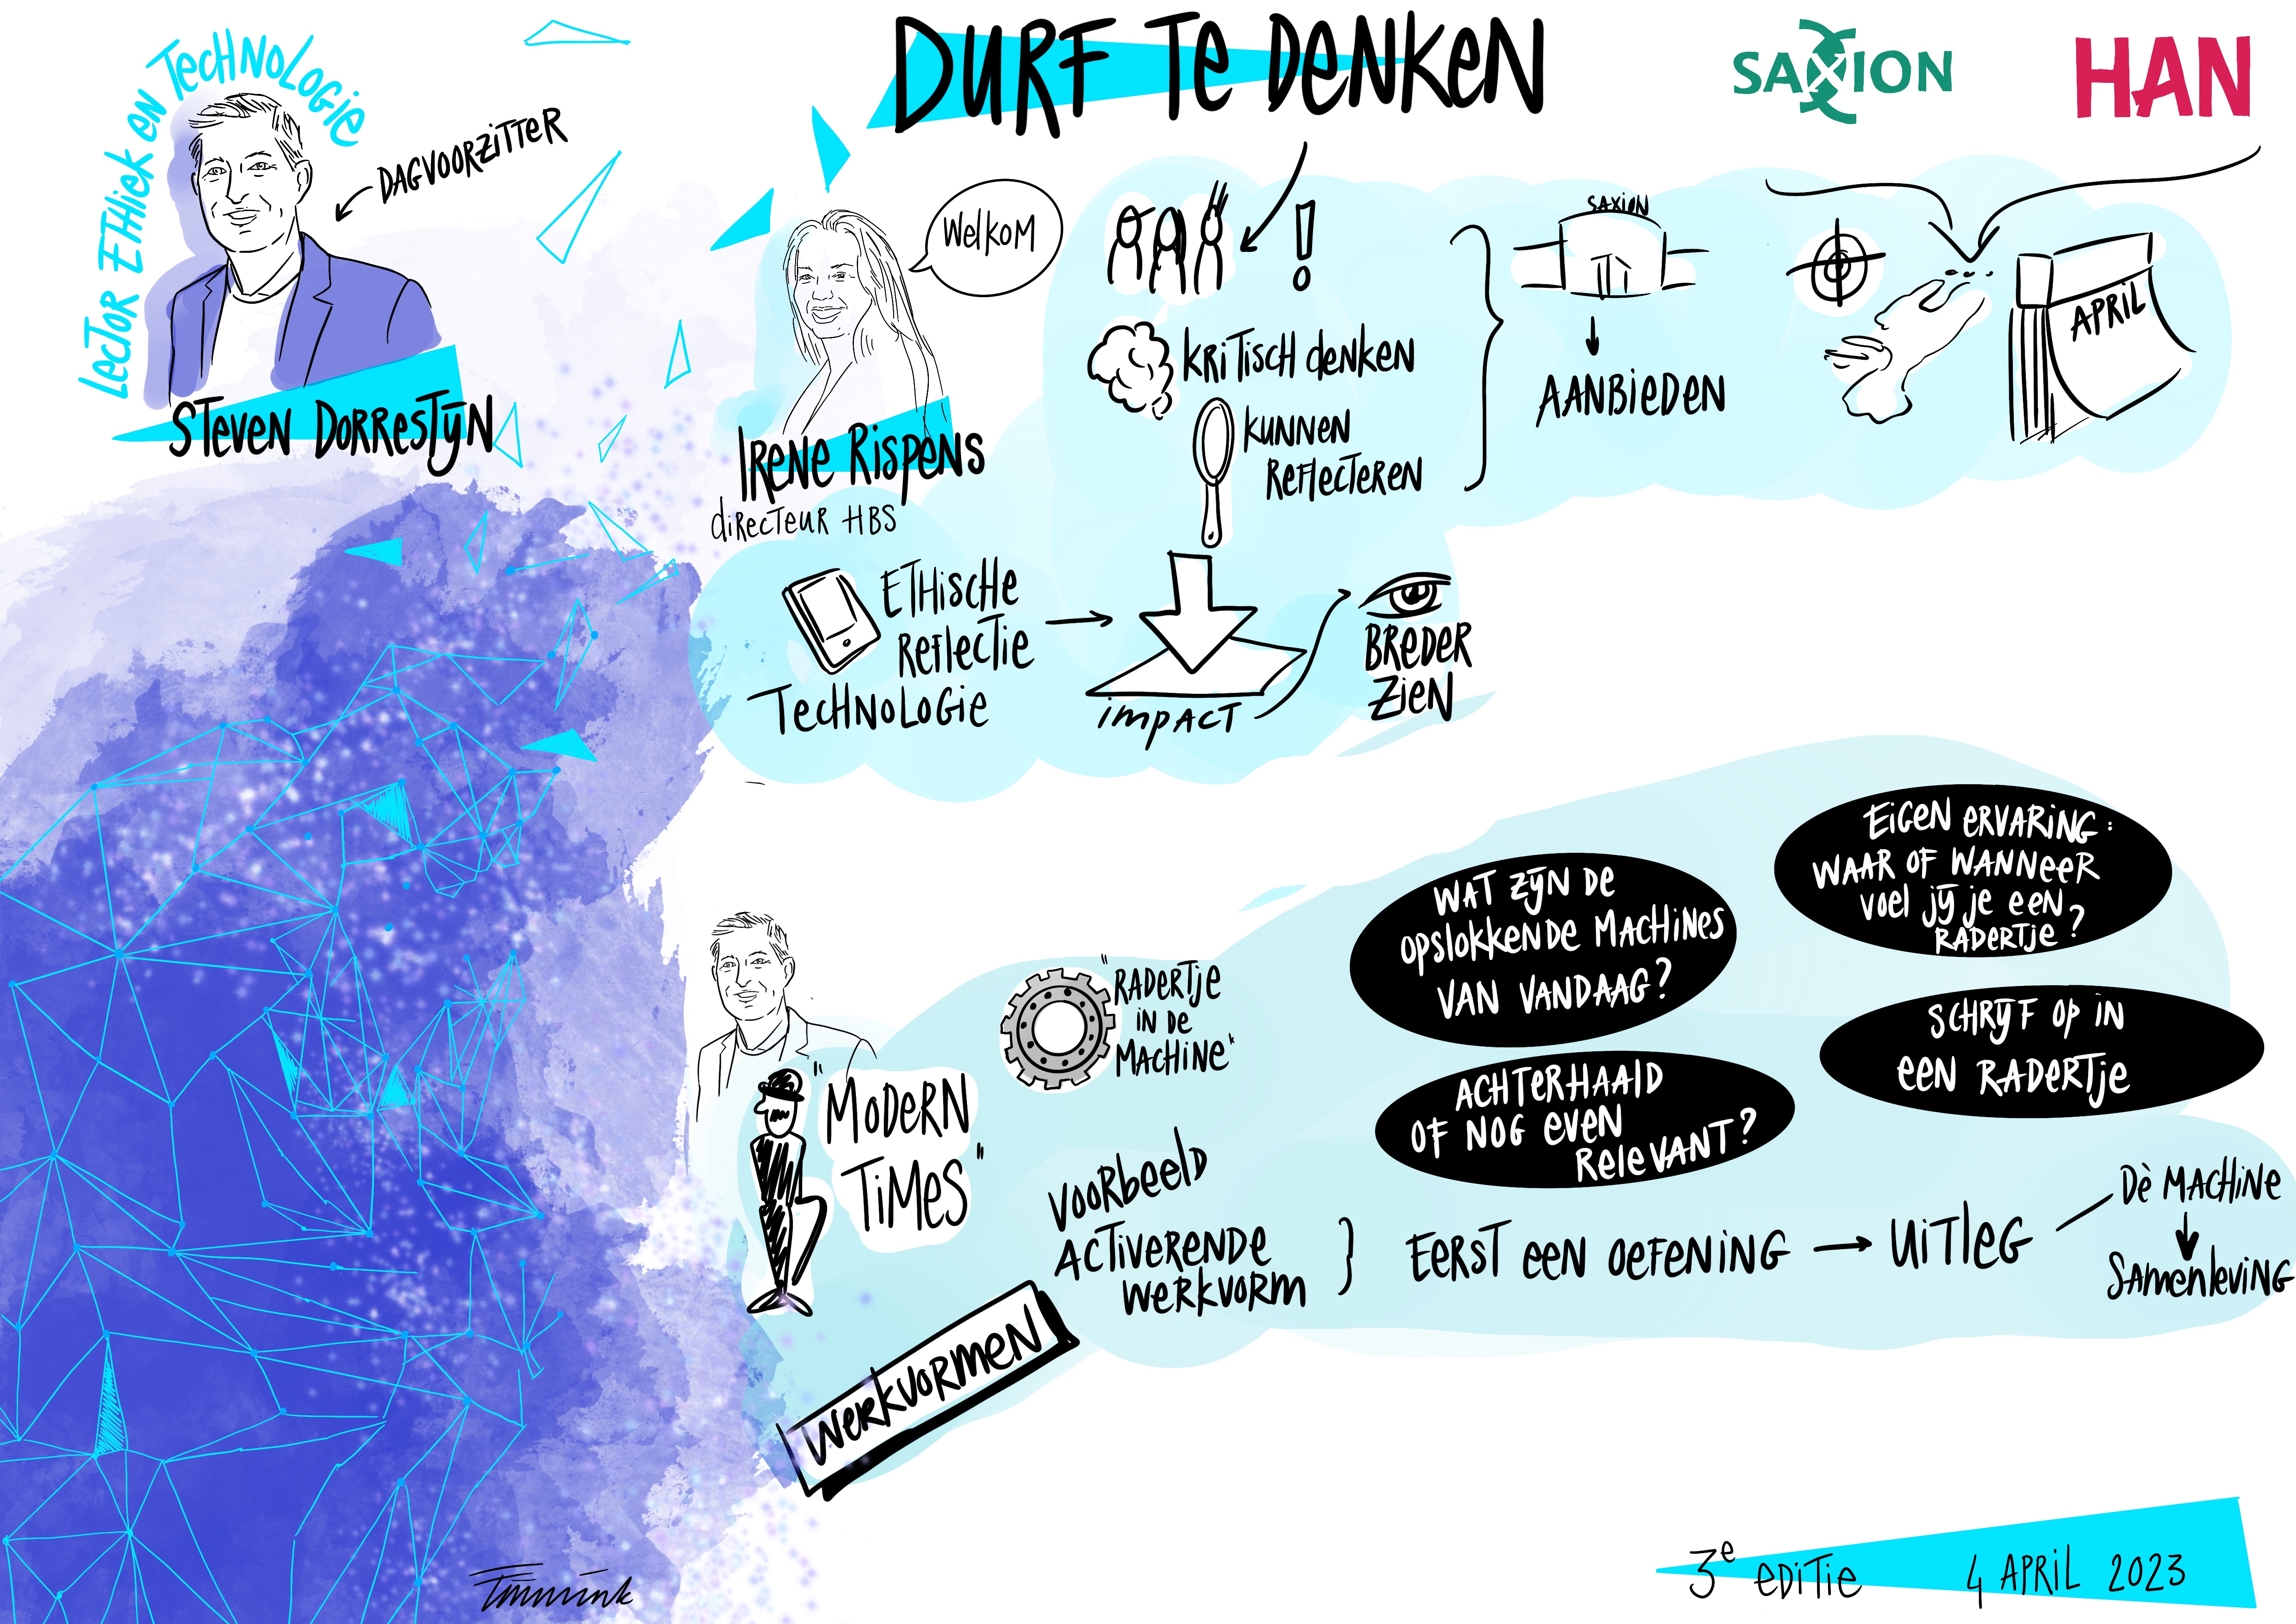 DURF TE DENKEN
SAXION
HAN
LECTOR ETHIEK EN TECHNOLOGIE
DAGVOORZITTER
STEVEN DORRESTIJN
WELKOM
IRENE RISPENS
DIRECTEUR HBS
!
KRITISCH DENKEN
KUNNEN
REFLECTEREN
SAXION
AANBIEDEN
APRIL
ETHISCHE
REFLECTIE
TECHNOLOGIE
IMPACT
BREDER
ZIEN
"MODERN
TIMES"
"RADERTJE
IN DE
MACHINE"
WAT ZIJN DE
OPSLOKKENDE MACHINES
VAN VANDAAG?
EIGEN ERVARING:
WAAR OF WANNEER
VOEL JIJ JE EEN
RADERTJE?
ACHTERHAALD
OF NOG EVEN
RELEVANT?
SCHRIJF OP IN
EEN RADERTJE
VOORBEELD
ACTIVERENDE
WERKVORM
}
EERST EEN OEFENING → UITLEG
DÈ MACHINE
↓
SAMENLEVING
WERKVORMEN
3e EDITIE
4 APRIL 2023